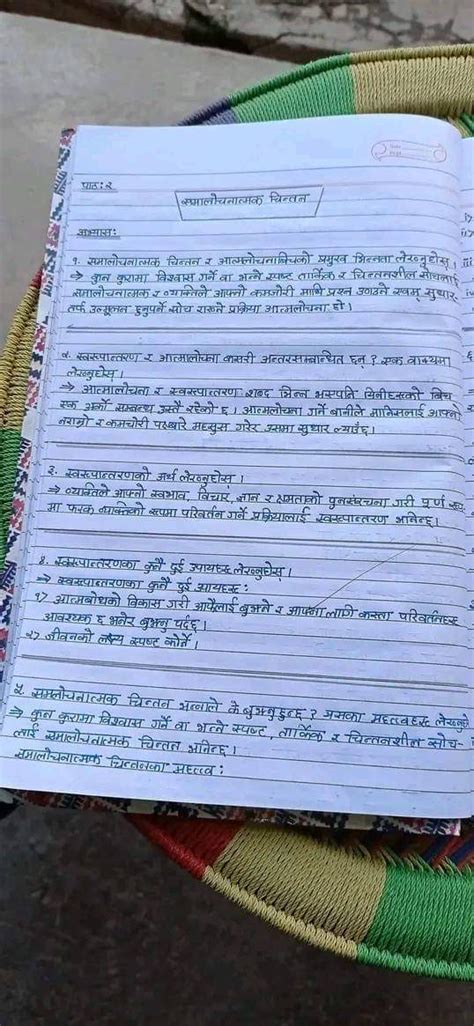 पाठ: २
समालोचनात्मक चिन्तन
अभ्यास:
१. समालोचनात्मक चिन्तन र आत्मलोचनाबिचको प्रमुख भिन्नता लेख्नुहोस् ।
⇒ कुन कुरामा विश्वास गर्ने वा भन्ने स्पष्ट तार्किक र चिन्तनशील सोचलाई
समालोचनात्मक र व्यक्तिले आफ्नो कमजोरी माथि प्रश्न उठाउने स्वम् सुधार
तर्फ उन्मूलन हुनुपर्ने सोच राख्ने प्रक्रिया आत्मलोचना हो ।
२. स्वरूपान्तरण र आत्मालोचना कसरी अन्तरसम्बान्धित छन् ? एक वाक्यमा
लेख्नुहोस् ।
⇒ आत्मालोचना र स्वरूपान्तरण शब्द भिन्न भएपनि यिनीहरूको बिच
एक अर्को सम्बन्ध उस्तै रहेको छ । आत्मलोचना गर्ने बानीले मानिसलाई आफ्नो
नराम्रो र कमजोरी पक्षबारे महसुस गरेर उसमा सुधार ल्याउँछ ।
३. स्वरूपान्तरणको अर्थ लेख्नुहोस् ।
⇒ व्यक्तिले आफ्नो स्वभाव, विचार, ज्ञान र क्षमताको पुनसंरचना गरी पूर्ण रूप
मा फरक व्यक्तिको रूपमा परिवर्तन गर्ने प्रक्रियालाई स्वरूपान्तरण भनिन्छ ।
४. स्वरूपान्तरणका कुनै दुई उपायहरू लेख्नुहोस् ।
⇒ स्वरूपान्तरणका कुनै दुई उपायहरू :
१) आत्मबोधको विकास गरी आफैलाई बुझ्ने र आफ्ना लागि कस्ता परिवर्तनहरू
आवश्यक छ भनेर बुझ्नु पर्दछ ।
२) जीवनको लक्ष्य स्पष्ट कोर्ने ।
५. समलोचनात्मक चिन्तन भन्नाले के बुझ्नुहुन्छ ? यसका महत्वहरू लेख्नुहो
⇒ कुन कुरामा विश्वास गर्ने वा भन्ने स्पष्ट, तार्किक र चिन्तनशील सोच-
लाई समालोचनात्मक चिन्तन भनिन्छ ।
समालोचनात्मक चिन्तनका महत्व :